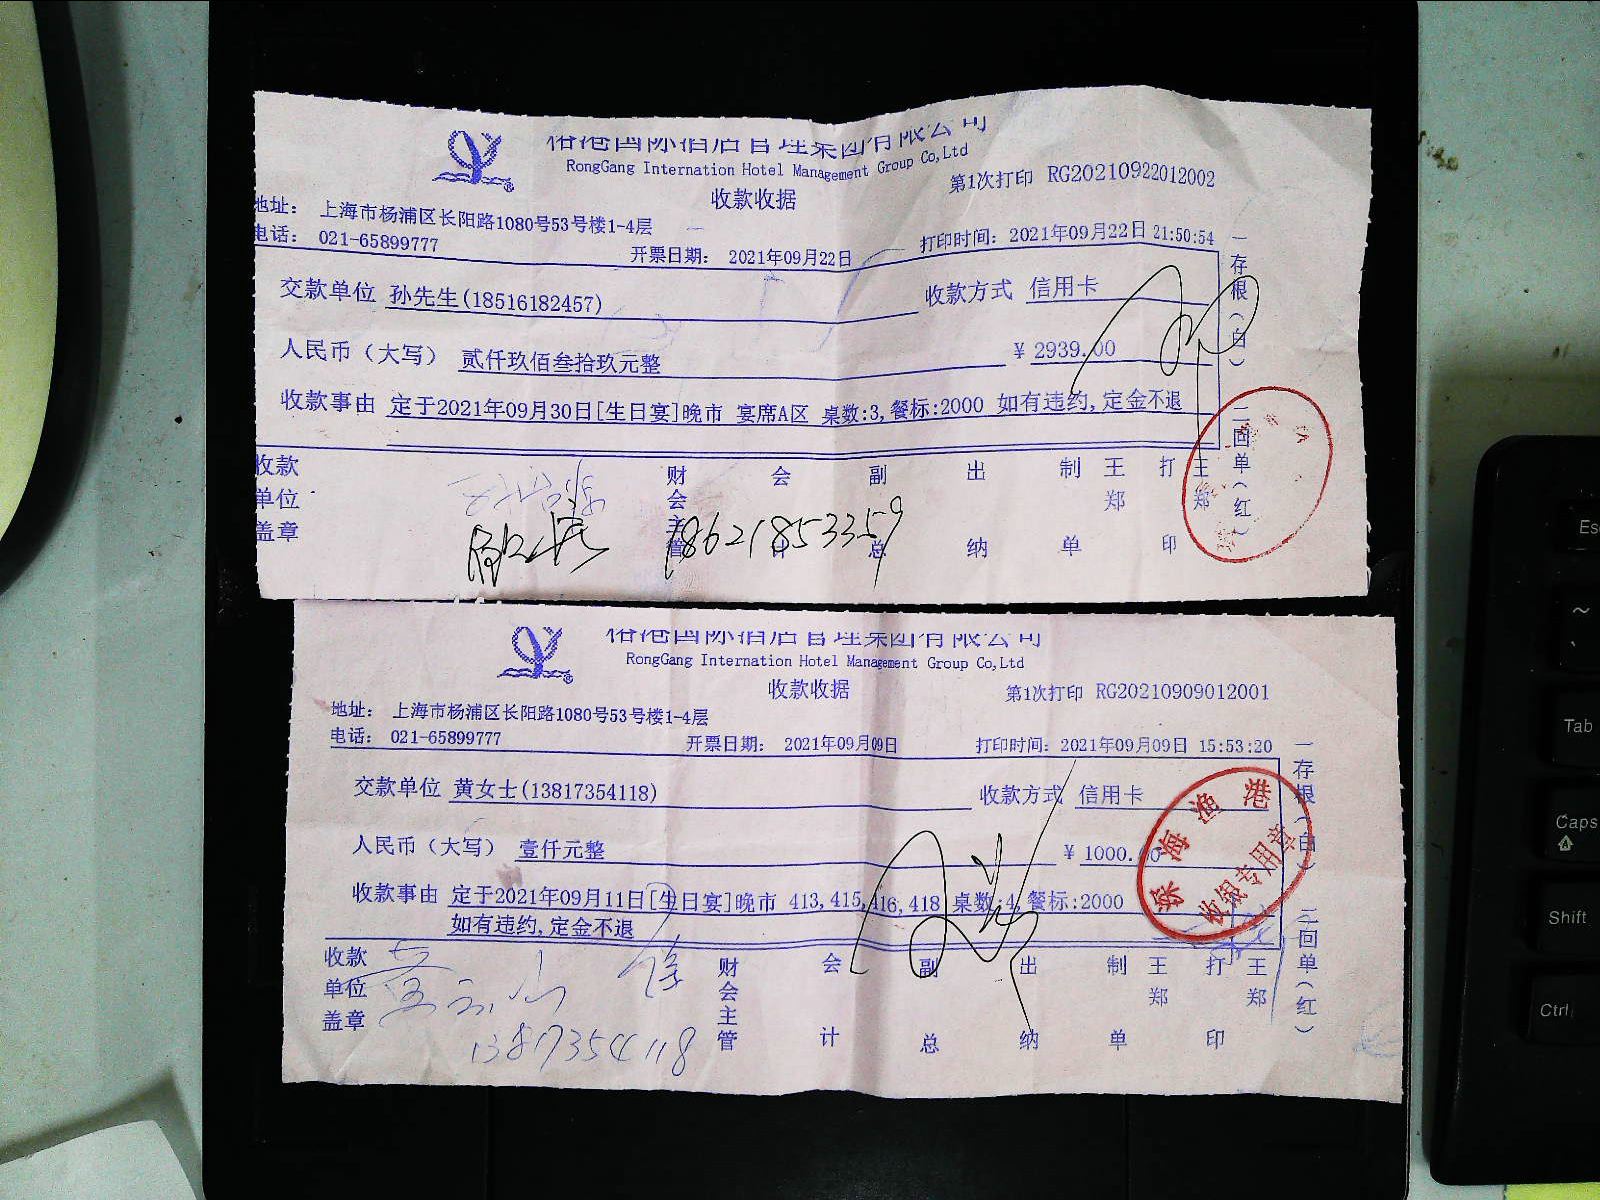 国际酒店管理集团有限公司
RongGang Internation Hotel Management Group Co,Ltd
收款收据
第1次打印 RG20210922012002
地址： 上海市杨浦区长阳路1080号53号楼1-4层
电话： 021-65899777
开票日期： 2021年09月22日
打印时间：2021年09月22日 21:50:54
交款单位 孙先生(18516182457)
收款方式 信用卡
人民币（大写） 贰仟玖佰叁拾玖元整
¥ 2939.00
收款事由 定于2021年09月30日[生日宴]晚市 宴席A区 桌数:3,餐标:2000 如有违约,定金不退
一存根（白） 二回单（红）
收款单位盖章
财会主管
会计
副总
出纳
制单
王郑
打印
王郑
18621853359
国际酒店管理集团有限公司
RongGang Internation Hotel Management Group Co,Ltd
收款收据
第1次打印 RG20210909012001
地址： 上海市杨浦区长阳路1080号53号楼1-4层
电话： 021-65899777
开票日期： 2021年09月09日
打印时间：2021年09月09日 15:53:20
交款单位 黄女士(13817354118)
收款方式 信用卡
人民币（大写） 壹仟元整
¥ 1000.00
收款事由 定于2021年09月11日[生日宴]晚市 413,415,416,418 桌数:4,餐标:2000
如有违约,定金不退
一存根（白） 二回单（红）
海渔港
收银专用章
收款单位盖章
财会主管
会计
副总
出纳
制单
王郑
打印
王郑
13817354118